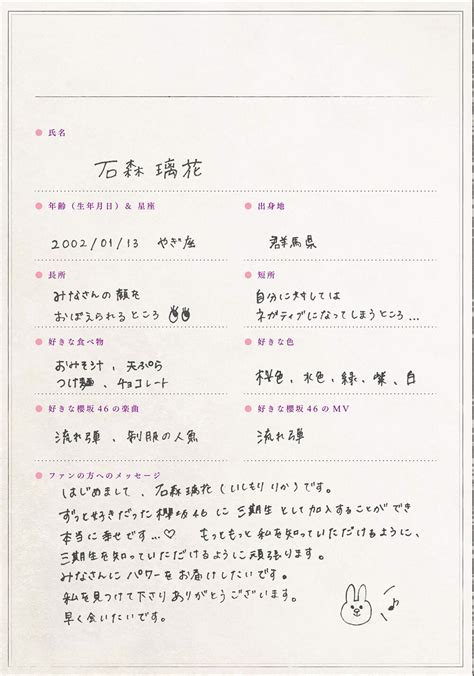 氏名
石森璃花
年齢（生年月日）& 星座
出身地
2002/01/13 やぎ座
群馬県
長所
短所
みなさんの顔を
おぼえられるところ
自分に対しては
ネガティブになってしまうところ...
好きな食べ物
好きな色
おみそ汁、天ぷら
つけ麺、チョコレート
桜色、水色、緑、紫、白
好きな櫻坂46の楽曲
好きな櫻坂46のMV
流れ弾、制服の人魚
流れ弾
ファンの方へのメッセージ
はじめまして、石森璃花(いしもり りか)です。
ずっと好きだった櫻坂46に三期生として加入することができ
本当に幸せです...♡ もっともっと私を知っていただけるように、
三期生を知っていただけるように頑張ります。
みなさんにパワーをお届けしたいです。
私を見つけて下さりありがとうございます。
早く会いたいです。